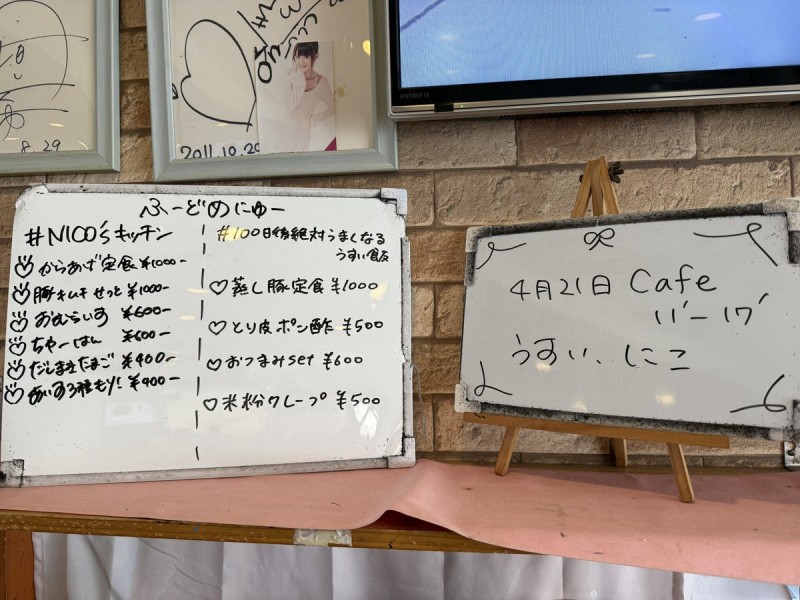 8.29
2011.10.20
ふーどめにゅー
#NICO'sキッチン
からあげ定食 ¥1000-
豚キムチせっと ¥1000-
おむらいす ¥600-
ちゃーはん ¥600-
だしまきたまご ¥400-
あいす3種もり! ¥400-
#100日後絶対うまくなる
うすい食友
♡蒸し豚定食 ¥1000
♡とり皮ポン酢 ¥500
♡おつまみset ¥600
♡米粉クレープ ¥500
4月21日 Cafe
11'-17'
うすい、にこ